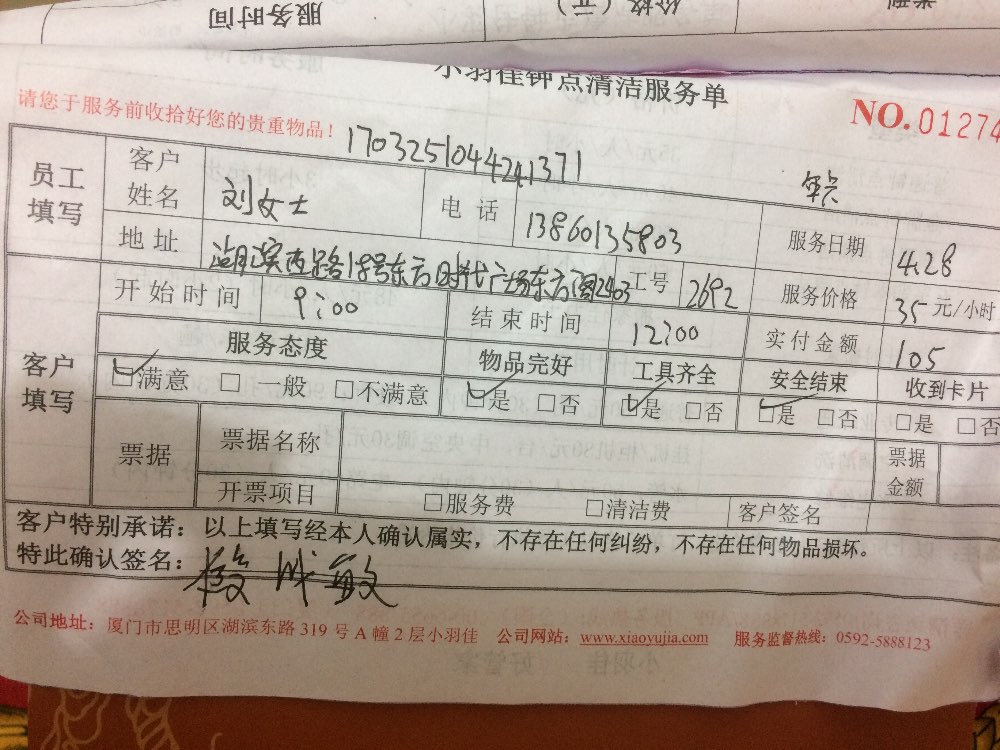 服务时间 价格(元)
小羽佳钟点清洁服务单
请您于服务前收拾好您的贵重物品！ NO. 01274
1703251044241371
员工填写 客户姓名 刘女士 电话 13860135803 服务日期 4.28
地址 湖滨西路18号东方时代广场东方阁2403 工号 2692 服务价格 35元/小时
开始时间 9:00 结束时间 12:00 实付金额 105
客户填写 服务态度 物品完好 工具齐全 安全结束 收到卡片
☑满意 □一般 □不满意 ☑是 □否 ☑是 □否 ☑是 □否 □是 □否
票据 票据名称 票据金额
开票项目 □服务费 □清洁费 客户签名
客户特别承诺：以上填写经本人确认属实，不存在任何纠纷，不存在任何物品损坏。
特此确认签名：
公司地址：厦门市思明区湖滨东路 319 号 A 幢 2 层小羽佳 公司网站：www.xiaoyujia.com 服务监督热线：0592-5888123